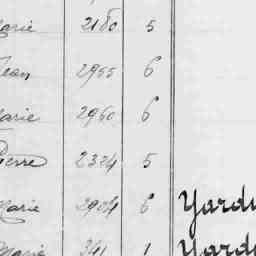 Marie 2180 5
Jean 2955 6
Marie 2960 6
Pierre 2324 5
Marie 2904 6 Yardi
Marie 341 1 Yard